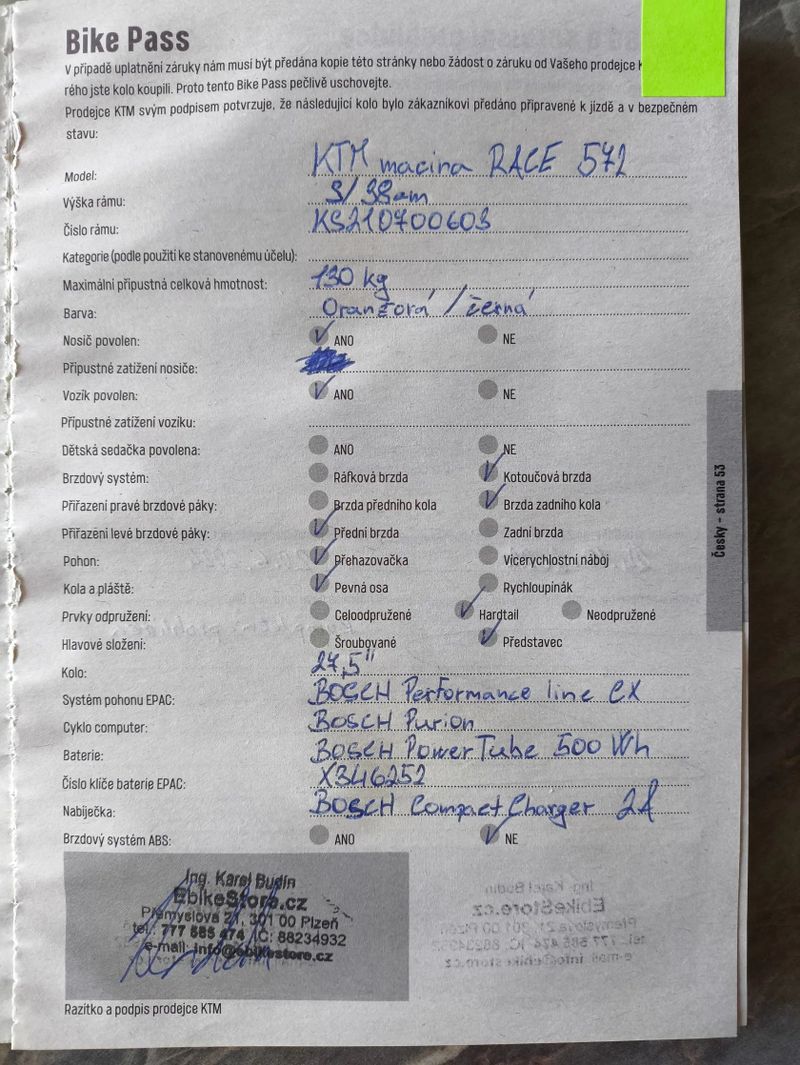 Bike Pass
V případě uplatnění záruky nám musí být předána kopie této stránky nebo žádost o záruku od Vašeho prodejce K
rého jste kolo koupili. Proto tento Bike Pass pečlivě uschovejte.
Prodejce KTM svým podpisem potvrzuje, že následující kolo bylo zákazníkovi předáno připravené k jízdě a v bezpečném
stavu:
Model: KTM macina RACE 572
Výška rámu: S/38cm
Číslo rámu: KS210700603
Kategorie (podle použití ke stanovenému účelu):
Maximální přípustná celková hmotnost: 130 kg
Barva: Oranžová / černá
Nosič povolen: ANO NE
Přípustné zatížení nosiče:
Vozík povolen: ANO NE
Přípustné zatížení vozíku:
Dětská sedačka povolena: ANO NE
Brzdový systém: Ráfková brzda Kotoučová brzda
Přiřazení pravé brzdové páky: Brzda předního kola Brzda zadního kola
Přiřazení levé brzdové páky: Přední brzda Zadní brzda
Pohon: Přehazovačka Vícerychlostní náboj
Kola a pláště: Pevná osa Rychloupínák
Prvky odpružení: Celoodpružené Hardtail Neodpružené
Hlavové složení: Šroubované Představec
Kolo: 27,5"
Systém pohonu EPAC: BOSCH Performance line CX
Cyklo computer: BOSCH Purion
Baterie: BOSCH PowerTube 500 Wh
Číslo klíče baterie EPAC: X346252
Nabíječka: BOSCH Compact Charger 2A
Brzdový systém ABS: ANO NE
Ing. Karel Budín
EbikeStore.cz
Přemyslova 21, 301 00 Plzeň
tel.: 777 585 474 IČ: 88234932
e-mail: info@ebikestore.cz
Razítko a podpis prodejce KTM
Česky – strana 53